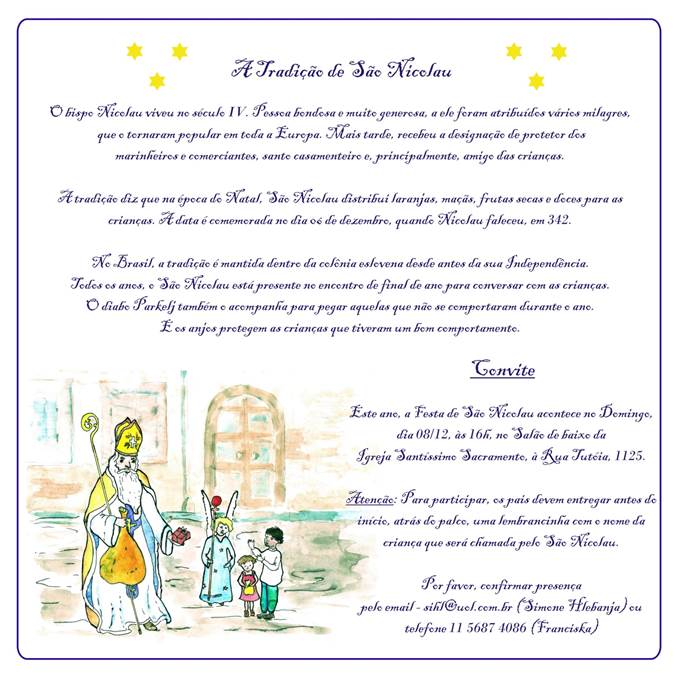 A Tradição de São Nicolau
O bispo Nicolau viveu no século IV. Pessoa bondosa e muito generosa, a ele foram atribuídos vários milagres,
que o tornaram popular em toda a Europa. Mais tarde, recebeu a designação de protetor dos
marinheiros e comerciantes, santo casamenteiro e, principalmente, amigo das crianças.
A tradição diz que na época do Natal, São Nicolau distribui laranjas, maçãs, frutas secas e doces para as
crianças. A data é comemorada no dia 06 de dezembro, quando Nicolau faleceu, em 342.
No Brasil, a tradição é mantida dentro da colônia eslovena desde antes da sua Independência.
Todos os anos, o São Nicolau está presente no encontro de final de ano para conversar com as crianças.
O diabo Parkelj também o acompanha para pegar aquelas que não se comportaram durante o ano.
E os anjos protegem as crianças que tiveram um bom comportamento.
Convite
Este ano, a Festa de São Nicolau acontece no Domingo,
dia 08/12, às 16h, no Salão de baixo da
Igreja Santíssimo Sacramento, à Rua Tutóia, 1125.
Atenção: Para participar, os pais devem entregar antes do
início, atrás do palco, uma lembrancinha com o nome da
criança que será chamada pelo São Nicolau.
Por favor, confirmar presença
pelo email - sihl@uol.com.br (Simone Hlebanja) ou
telefone 11 5687 4086 (Franciska)